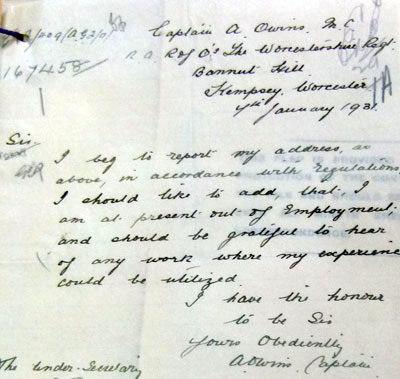 Captain A. Owins. M.C
R of O's The Worcestershire Regt.
Bannut Hill
Kempsey, Worcester
7th January 1931.
167458
Sir
I beg to report my address, as
above, in accordance with regulations,
I should like to add, that I
am at present out of Employment,
and should be grateful to hear
of any work where my experience
could be utilized
I have the honour
to be Sir
Yours Obediently
A Owins Captain
The Under-Secretary